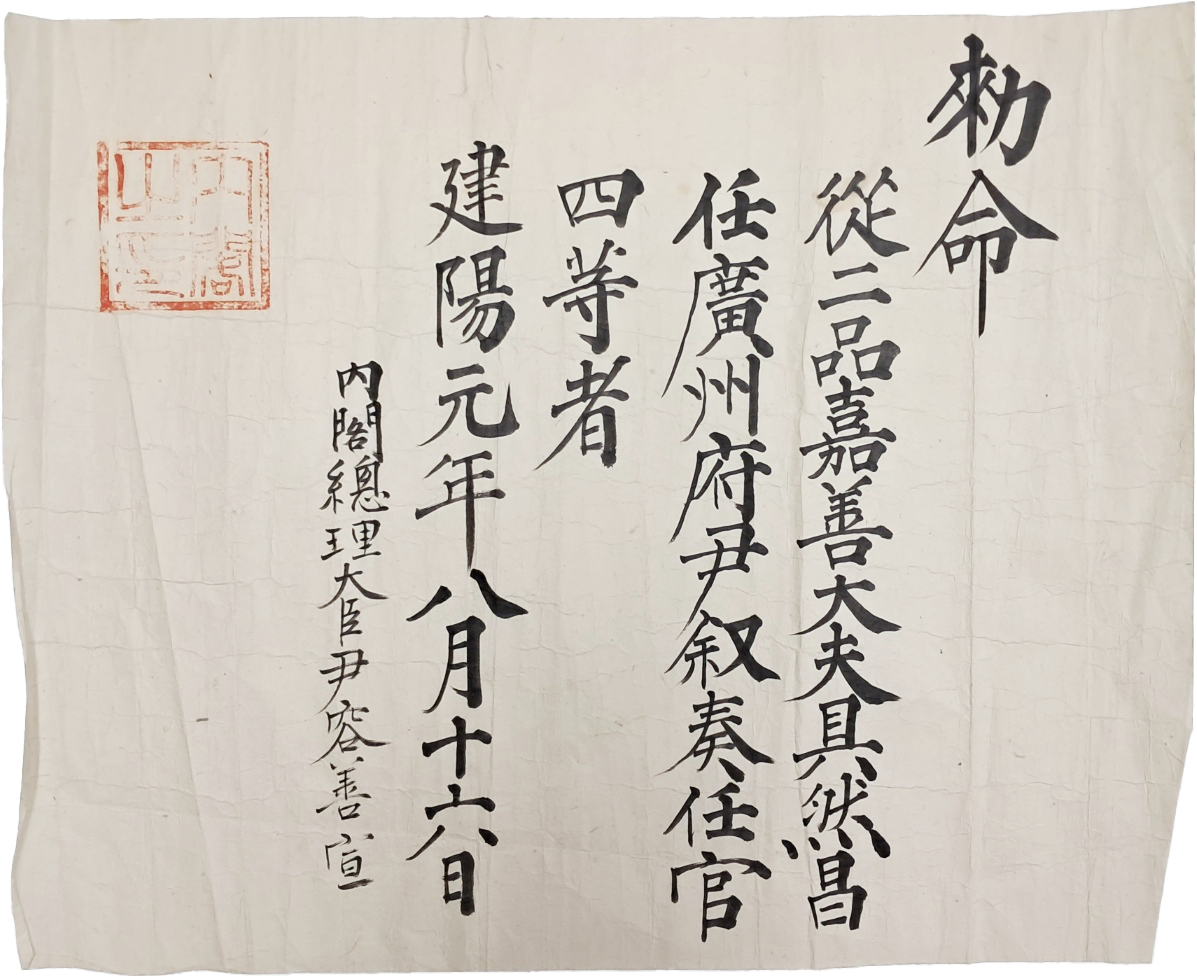 勑命
從二品嘉善大夫具然昌
任廣州府尹叙奏任官
四等者
建陽元年八月十六日
內閣總理大臣尹容善宣
內閣之印